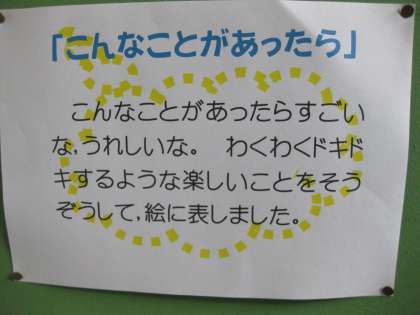 「こんなことがあったら」
こんなことがあったらすごい
な，うれしいな。　わくわくドキド
キするような楽しいことをそう
ぞうして，絵に表しました。